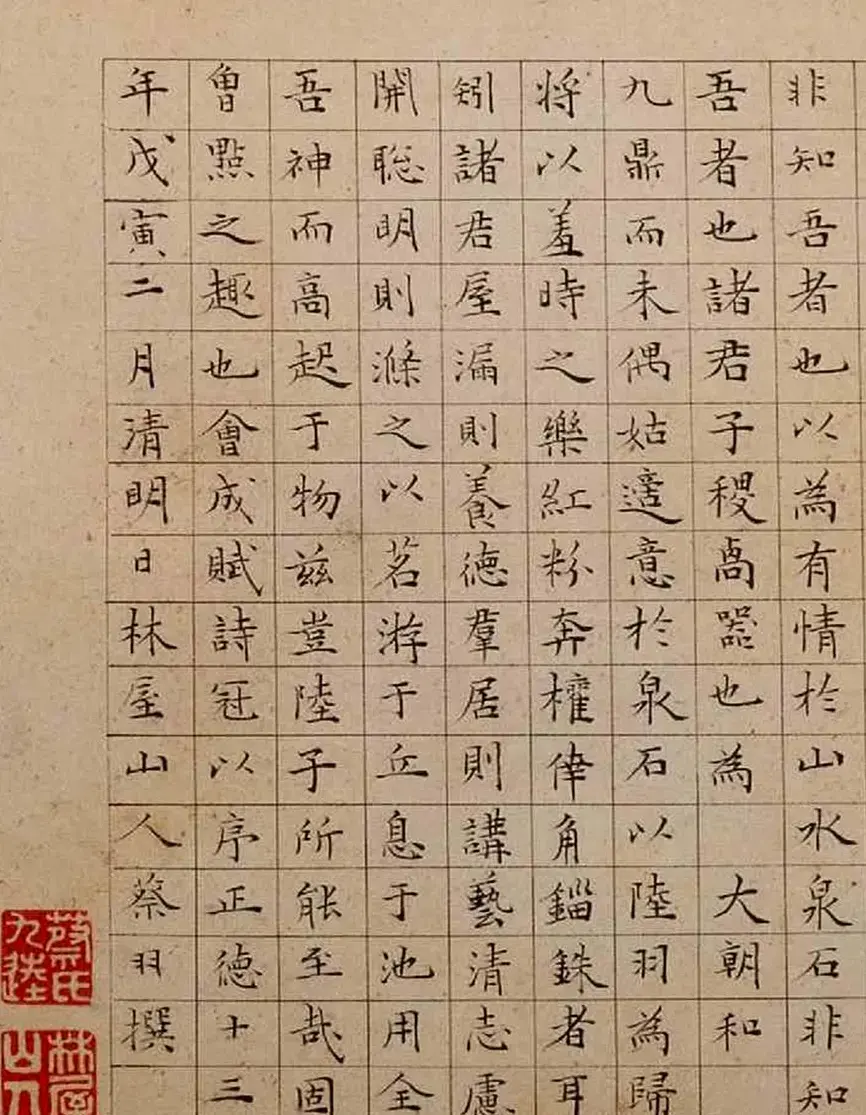 非知吾者也以為有情於山水泉石非知
吾者也諸君子稷卨器也為大朝和
九鼎而未偶姑適意於泉石以陸羽為歸
将以羞時之樂紅粉奔權倖角錙銖者耳
矧諸君屋漏則養德羣居則講藝清志慮
開聡明則滌之以茗游于丘息于池用全
吾神而高起于物茲豈陸子所能至哉固
曾點之趣也會成賦詩冠以序正德十三
年戊寅二月清明日林屋山人蔡羽撰